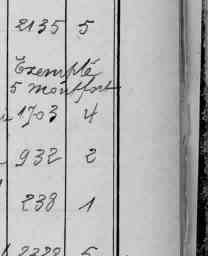 2135 5
Exempté
5 montfort
1703 4
932 2
238 1
2328 5